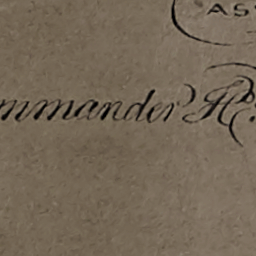 AS
mmander H